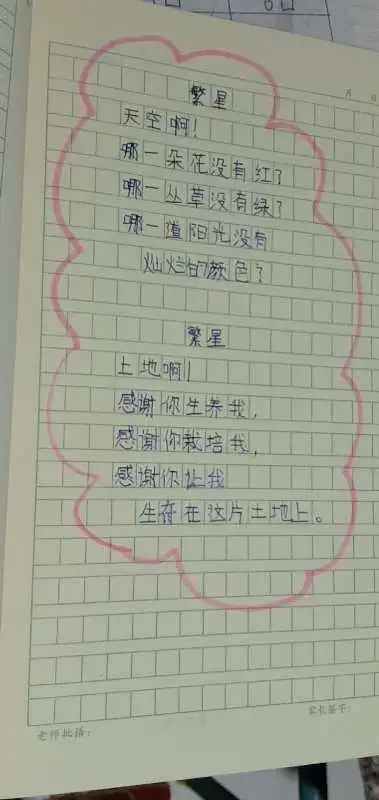 月 日
繁星
天空啊！
哪一朵花没有红？
哪一丛草没有绿？
哪一道阳光没有
灿烂的颜色？
繁星
土地啊！
感谢你生养我，
感谢你栽培我，
感谢你让我
生存在这片土地上。
家长签字：
老师批语：